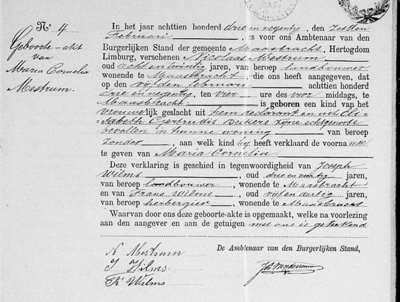 No. 4
Geboorte-akt
van
Maria Cornelia
Mestrum.
In het jaar achttien honderd drie en negentig, den zesden
Februari is voor ons Ambtenaar van den
Burgerlijken Stand der gemeente Maasbracht, Hertogdom
Limburg, verschenen Nicolaas Mestrum
oud acht en twintig jaren, van beroep
wonende te Maasbracht, die ons heeft aangegeven, dat
op vijfden februari achttien honderd
drie en negentig, ten vier ure voor middags, te
Maasbracht is geboren een kind van het
vrouwelijk geslacht uit hem declarant en uit
Egertrudis zijne echtgenoote
bevallen in hunne woning
zonder aan welk kind hij heeft verklaard de voornamen
te geven van Maria Cornelia
Deze verklaring is geschied in tegenwoordigheid van Joseph
Wilms, oud drie en veertig jaren,
van beroep landbouwer wonende te Maasbracht
en Frans Wilms, oud vijf en dertig jaren,
van beroep herbergier wonende te Maasbracht
Waarvan door ons deze geboorte-akte is opgemaakt, welke na voorlezing
aan den aangever en aan de getuigen met ons is geteekend
De Ambtenaar van den Burgerlijken Stand,
N. Mestrum
J. Wilms
Fr. Wilms